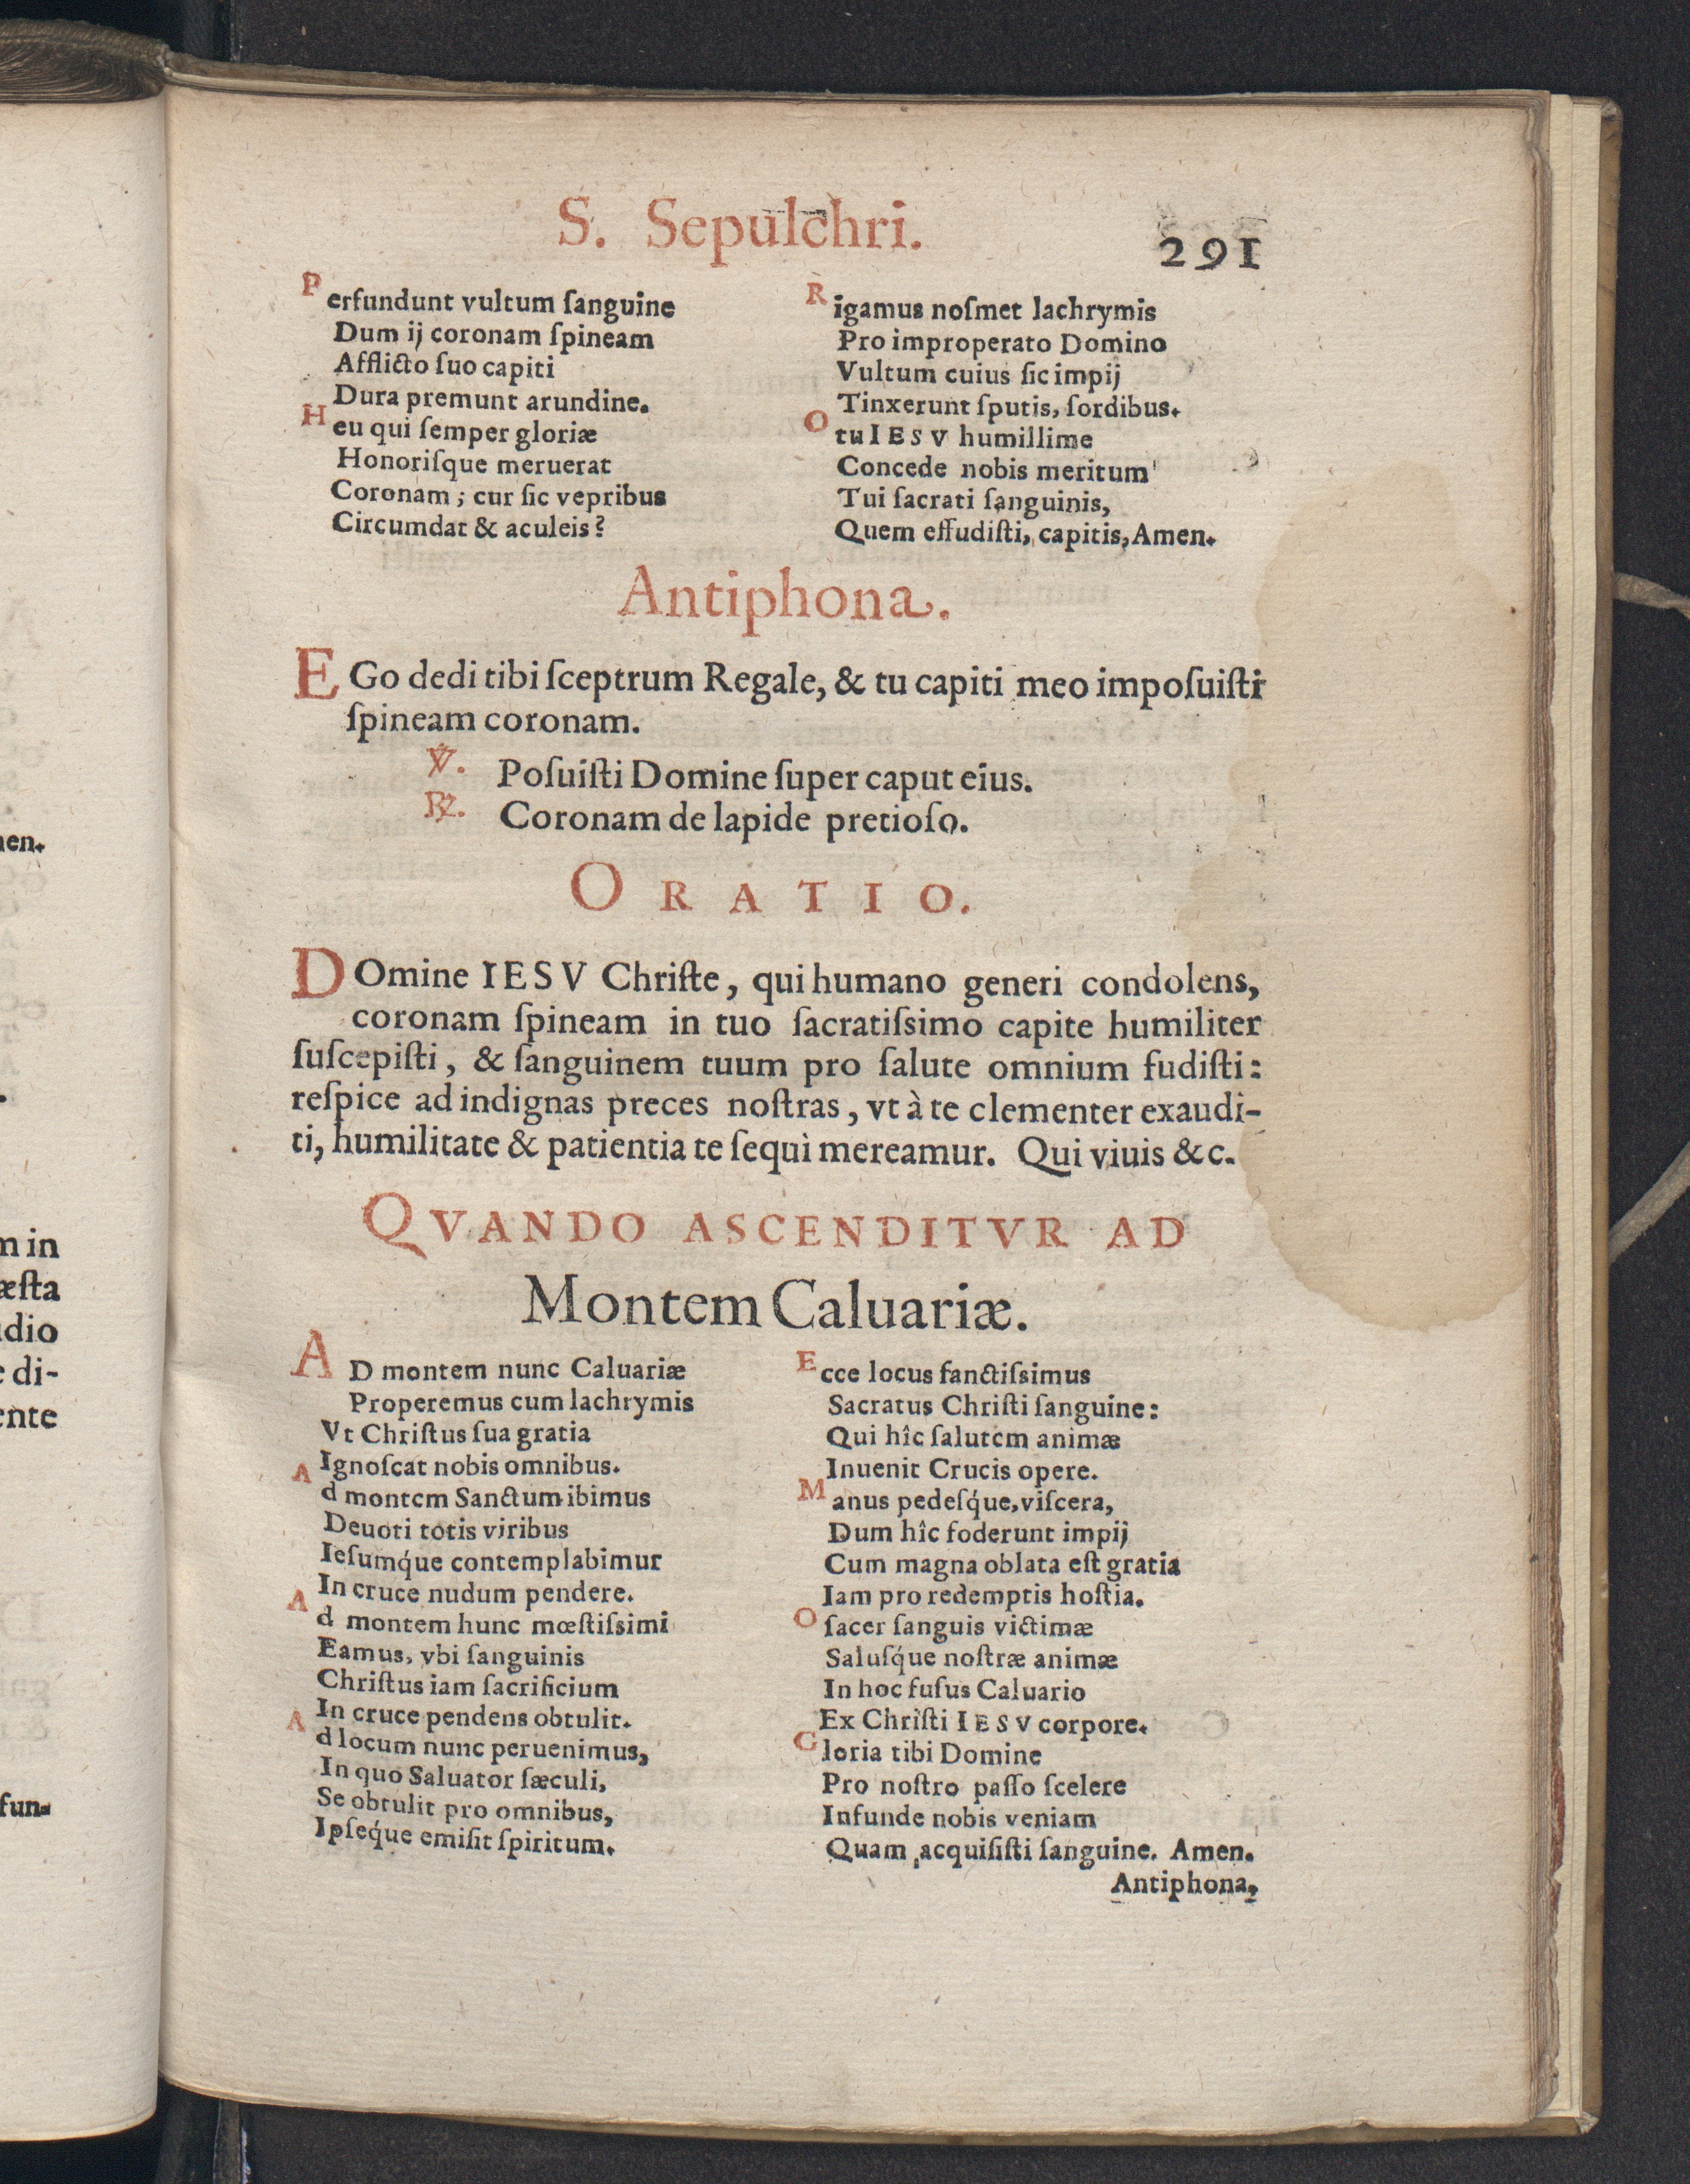 en.
m in
æſta
dio
di-
ente
fun-
S. Sepulchri.
291
Perfundunt vultum ſanguine
Dum ij coronam ſpineam
Afflicto ſuo capiti
Dura premunt arundine.
Heu qui ſemper gloriæ
Honoriſque meruerat
Coronam; cur ſic vepribus
Circumdat & aculeis?
Rigamus noſmet lachrymis
Pro improperato Domino
Vultum cuius ſic impij
Tinxerunt ſputis, ſordibus.
O tu IESV humillime
Concede nobis meritum
Tui ſacrati ſanguinis,
Quem effudiſti, capitis, Amen.
Antiphona.
EGo dedi tibi ſceptrum Regale, & tu capiti meo impoſuiſti
ſpineam coronam.
℣. Poſuiſti Domine ſuper caput eius.
℟. Coronam de lapide pretioſo.
ORATIO.
DOmine IESV Chriſte, qui humano generi condolens,
coronam ſpineam in tuo ſacratiſsimo capite humiliter
ſuſcepiſti, & ſanguinem tuum pro ſalute omnium fudiſti:
reſpice ad indignas preces noſtras, vt à te clementer exaudi-
ti, humilitate & patientia te ſequi mereamur. Qui viuis &c.
QVANDO ASCENDITVR AD
Montem Caluariæ.
AD montem nunc Caluariæ
Properemus cum lachrymis
Vt Chriſtus ſua gratia
Ignoſcat nobis omnibus.
Ad montem Sanctum ibimus
Deuoti totis viribus
Ieſumq́ue contemplabimur
In cruce nudum pendere.
Ad montem hunc mœſtiſsimi
Eamus, vbi ſanguinis
Chriſtus iam ſacrificium
In cruce pendens obtulit.
Ad locum nunc peruenimus,
In quo Saluator ſæculi,
Se obtulit pro omnibus,
Ipſeq́ue emiſit ſpiritum.
Ecce locus ſanctiſsimus
Sacratus Chriſti ſanguine:
Qui hîc ſalutem animæ
Inuenit Crucis opere.
Manus pedeſq́ue, viſcera,
Dum hîc foderunt impij
Cum magna oblata eſt gratia
Iam pro redemptis hoſtia.
O ſacer ſanguis victimæ
Saluſq́ue noſtræ animæ
In hoc fuſus Caluario
Ex Chriſti IESV corpore.
Gloria tibi Domine
Pro noſtro paſſo ſcelere
Infunde nobis veniam
Quam acquiſiſti ſanguine. Amen.
Antiphona,